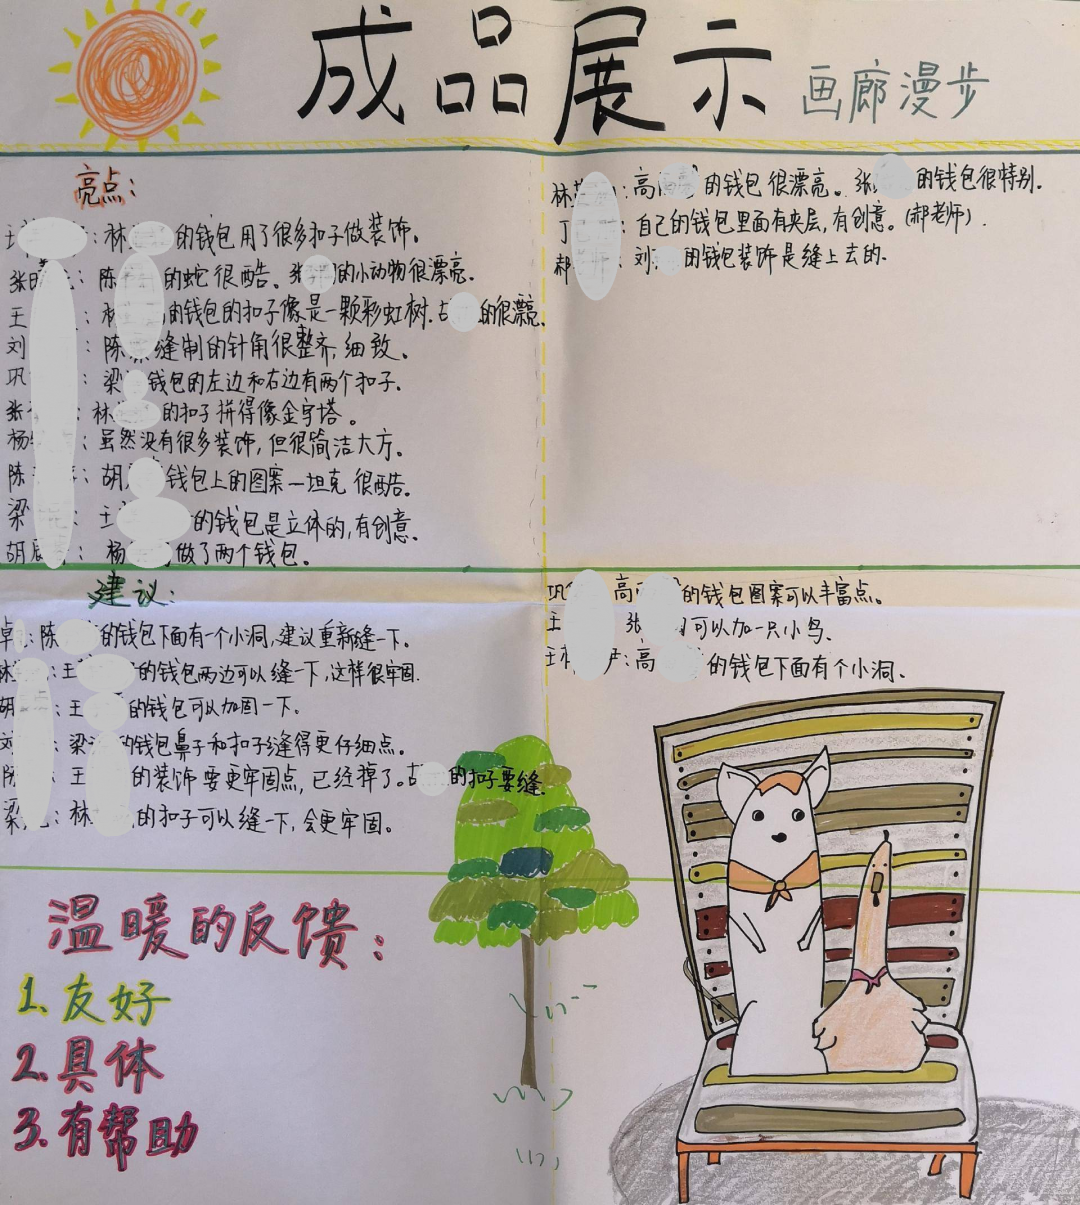 成品展示 画廊漫步
亮点：
：林 的钱包用了很多扣子做装饰。
张 ：陈 的蛇很酷。张 的小动物很漂亮。
王 ： 的钱包的扣子像是一颗彩虹树. 的很漂亮.
刘 ：陈 缝制的针角很整齐,细致、
巩 ：梁 钱包的左边和右边有两个扣子.
张 ：林 的扣子拼得像金字塔。
杨 ：虽然没有很多装饰,但很简洁大方。
陈 ：胡 钱包上的图案一坦克 很酷。
梁 ：王 的钱包是立体的,有创意.
胡 ：杨 做了两个钱包.
林 ：高 的钱包很漂亮。张 的钱包很特别.
丁 ：自己的钱包里面有夹层,有创意。(郝老师).
郝 ：刘 的钱包装饰是缝上去的.
建议：
：陈 的钱包下面有一个小洞,建议重新缝一下。
林 ：王 的钱包两边可以缝一下,这样很牢固.
胡 ：王 的钱包可以加固一下。
刘 ：梁 的钱包鼻子和扣子缝得更仔细点。
陈 ：王 的装饰要更牢固点,已经掉了。 的扣子要缝.
梁 ：林 的扣子可以缝一下,会更牢固。
巩 高 的钱包图案可以丰富点。
王 张 可以加一只小鸟、
王 ：高 的钱包下面有个小洞、
温暖的反馈：
1.友好
2.具体
3.有帮助